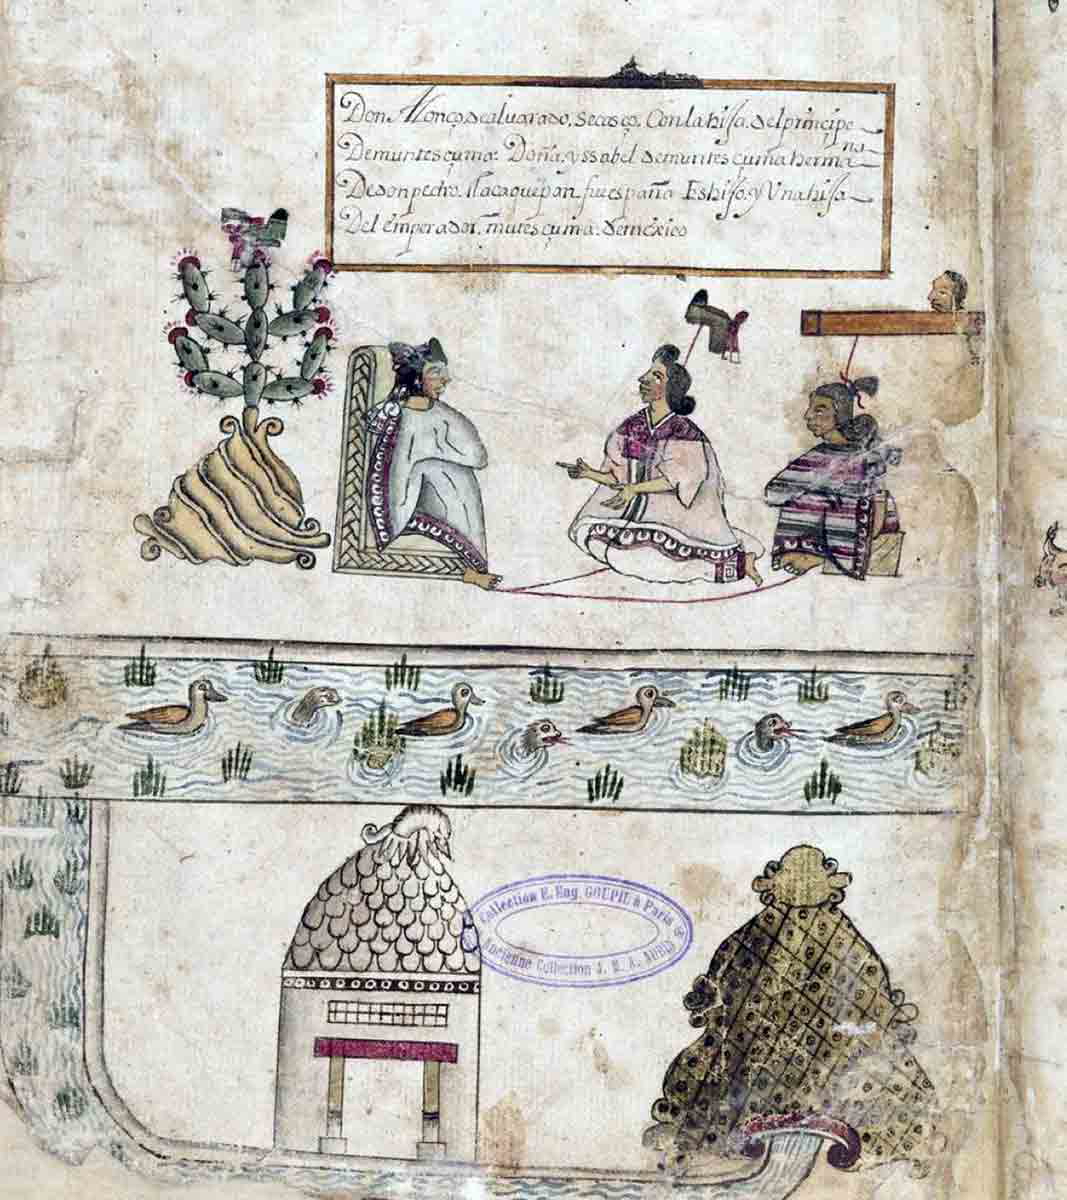 Don Alonço de aluarado. de casco. Con la hija. del principe
De muntesçuma. Doña. yssabel de muntesçuma herma-
na
De don pedro. tlacaquepan fue españa Es hijo. y Una hija
Del emperador. mutesçuma. de mexico
Collection E. Eug. GOUPIL à Paris
Ancienne Collection J. M. A. AUBIN